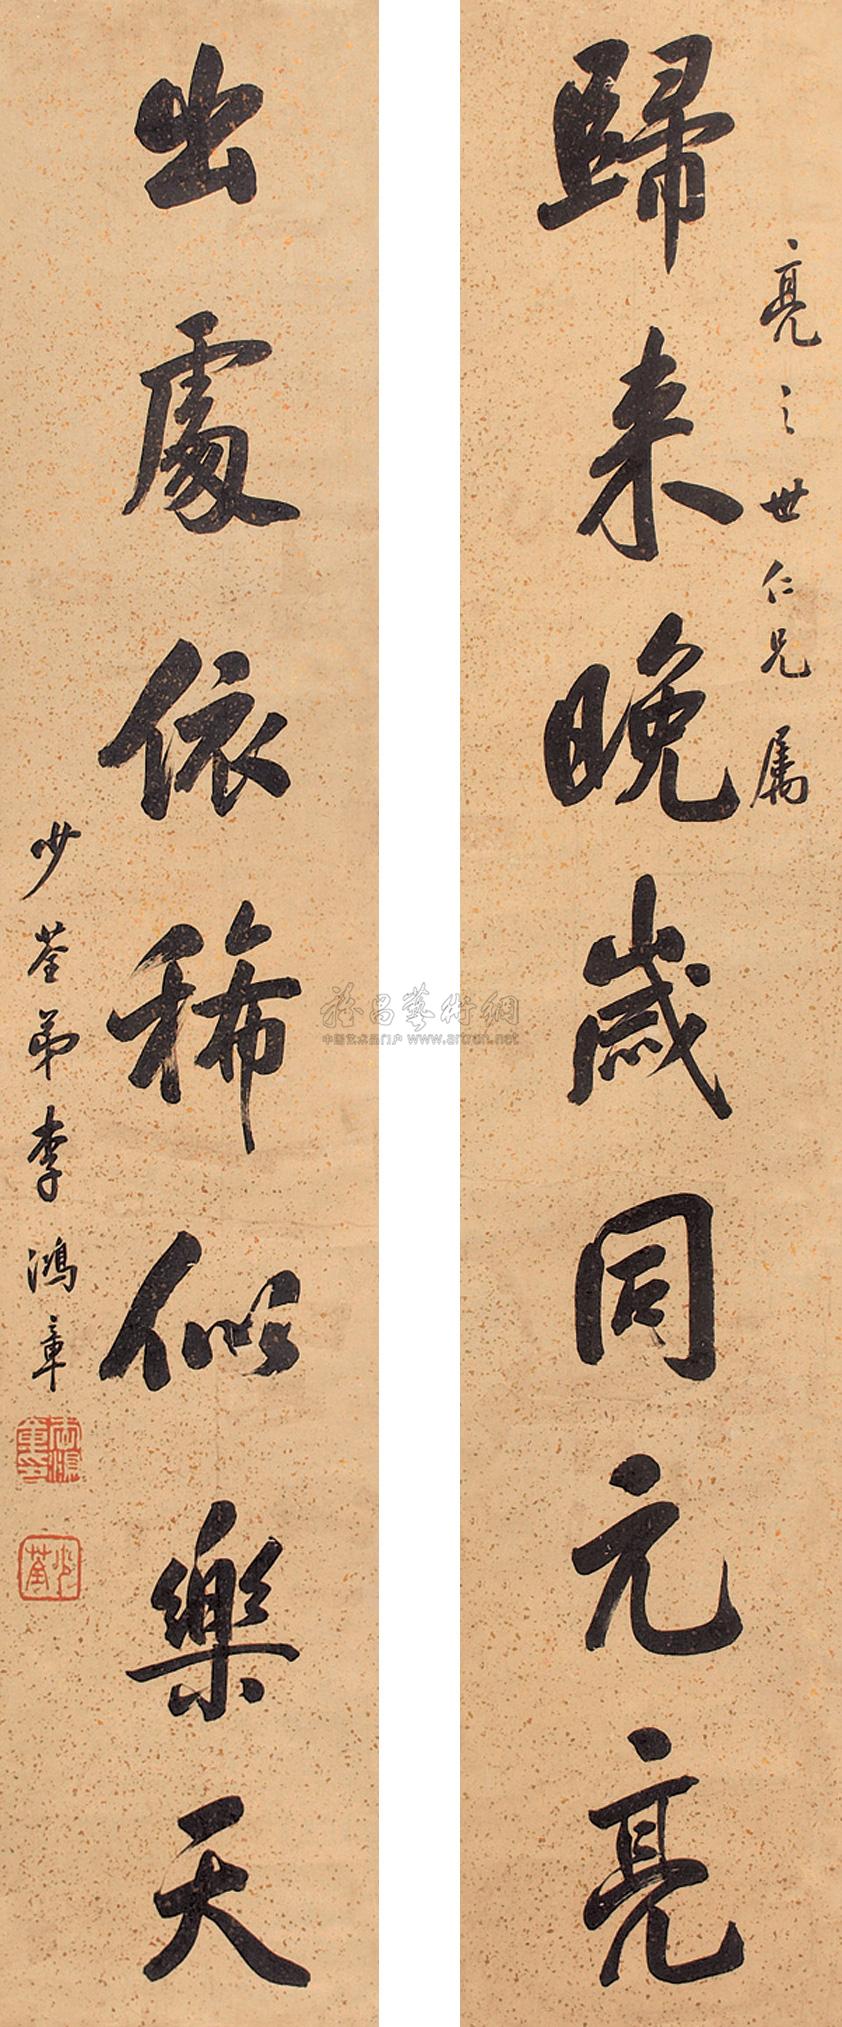 歸来晚歲同元亮
亮之世仁兄屬
出處依稀似樂天
少荃弟李鴻章
少荃
雅昌藝術網
中国艺术品门户 www.artron.net